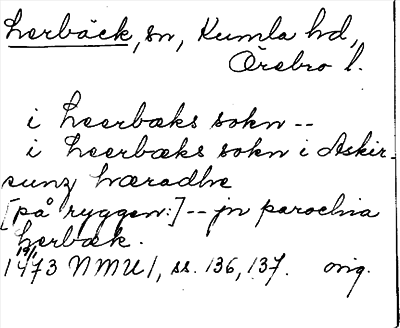 Lerbäck, sn, Kumla hd,
Örebro l.
i Leerbæks sokn --
i Leerbæks sokn i Askir-
sunz hæradhe
[på ryggen:] -- jn parochia
Lerbæk.
19/1
1473 NMU 1, ss. 136, 137. orig.